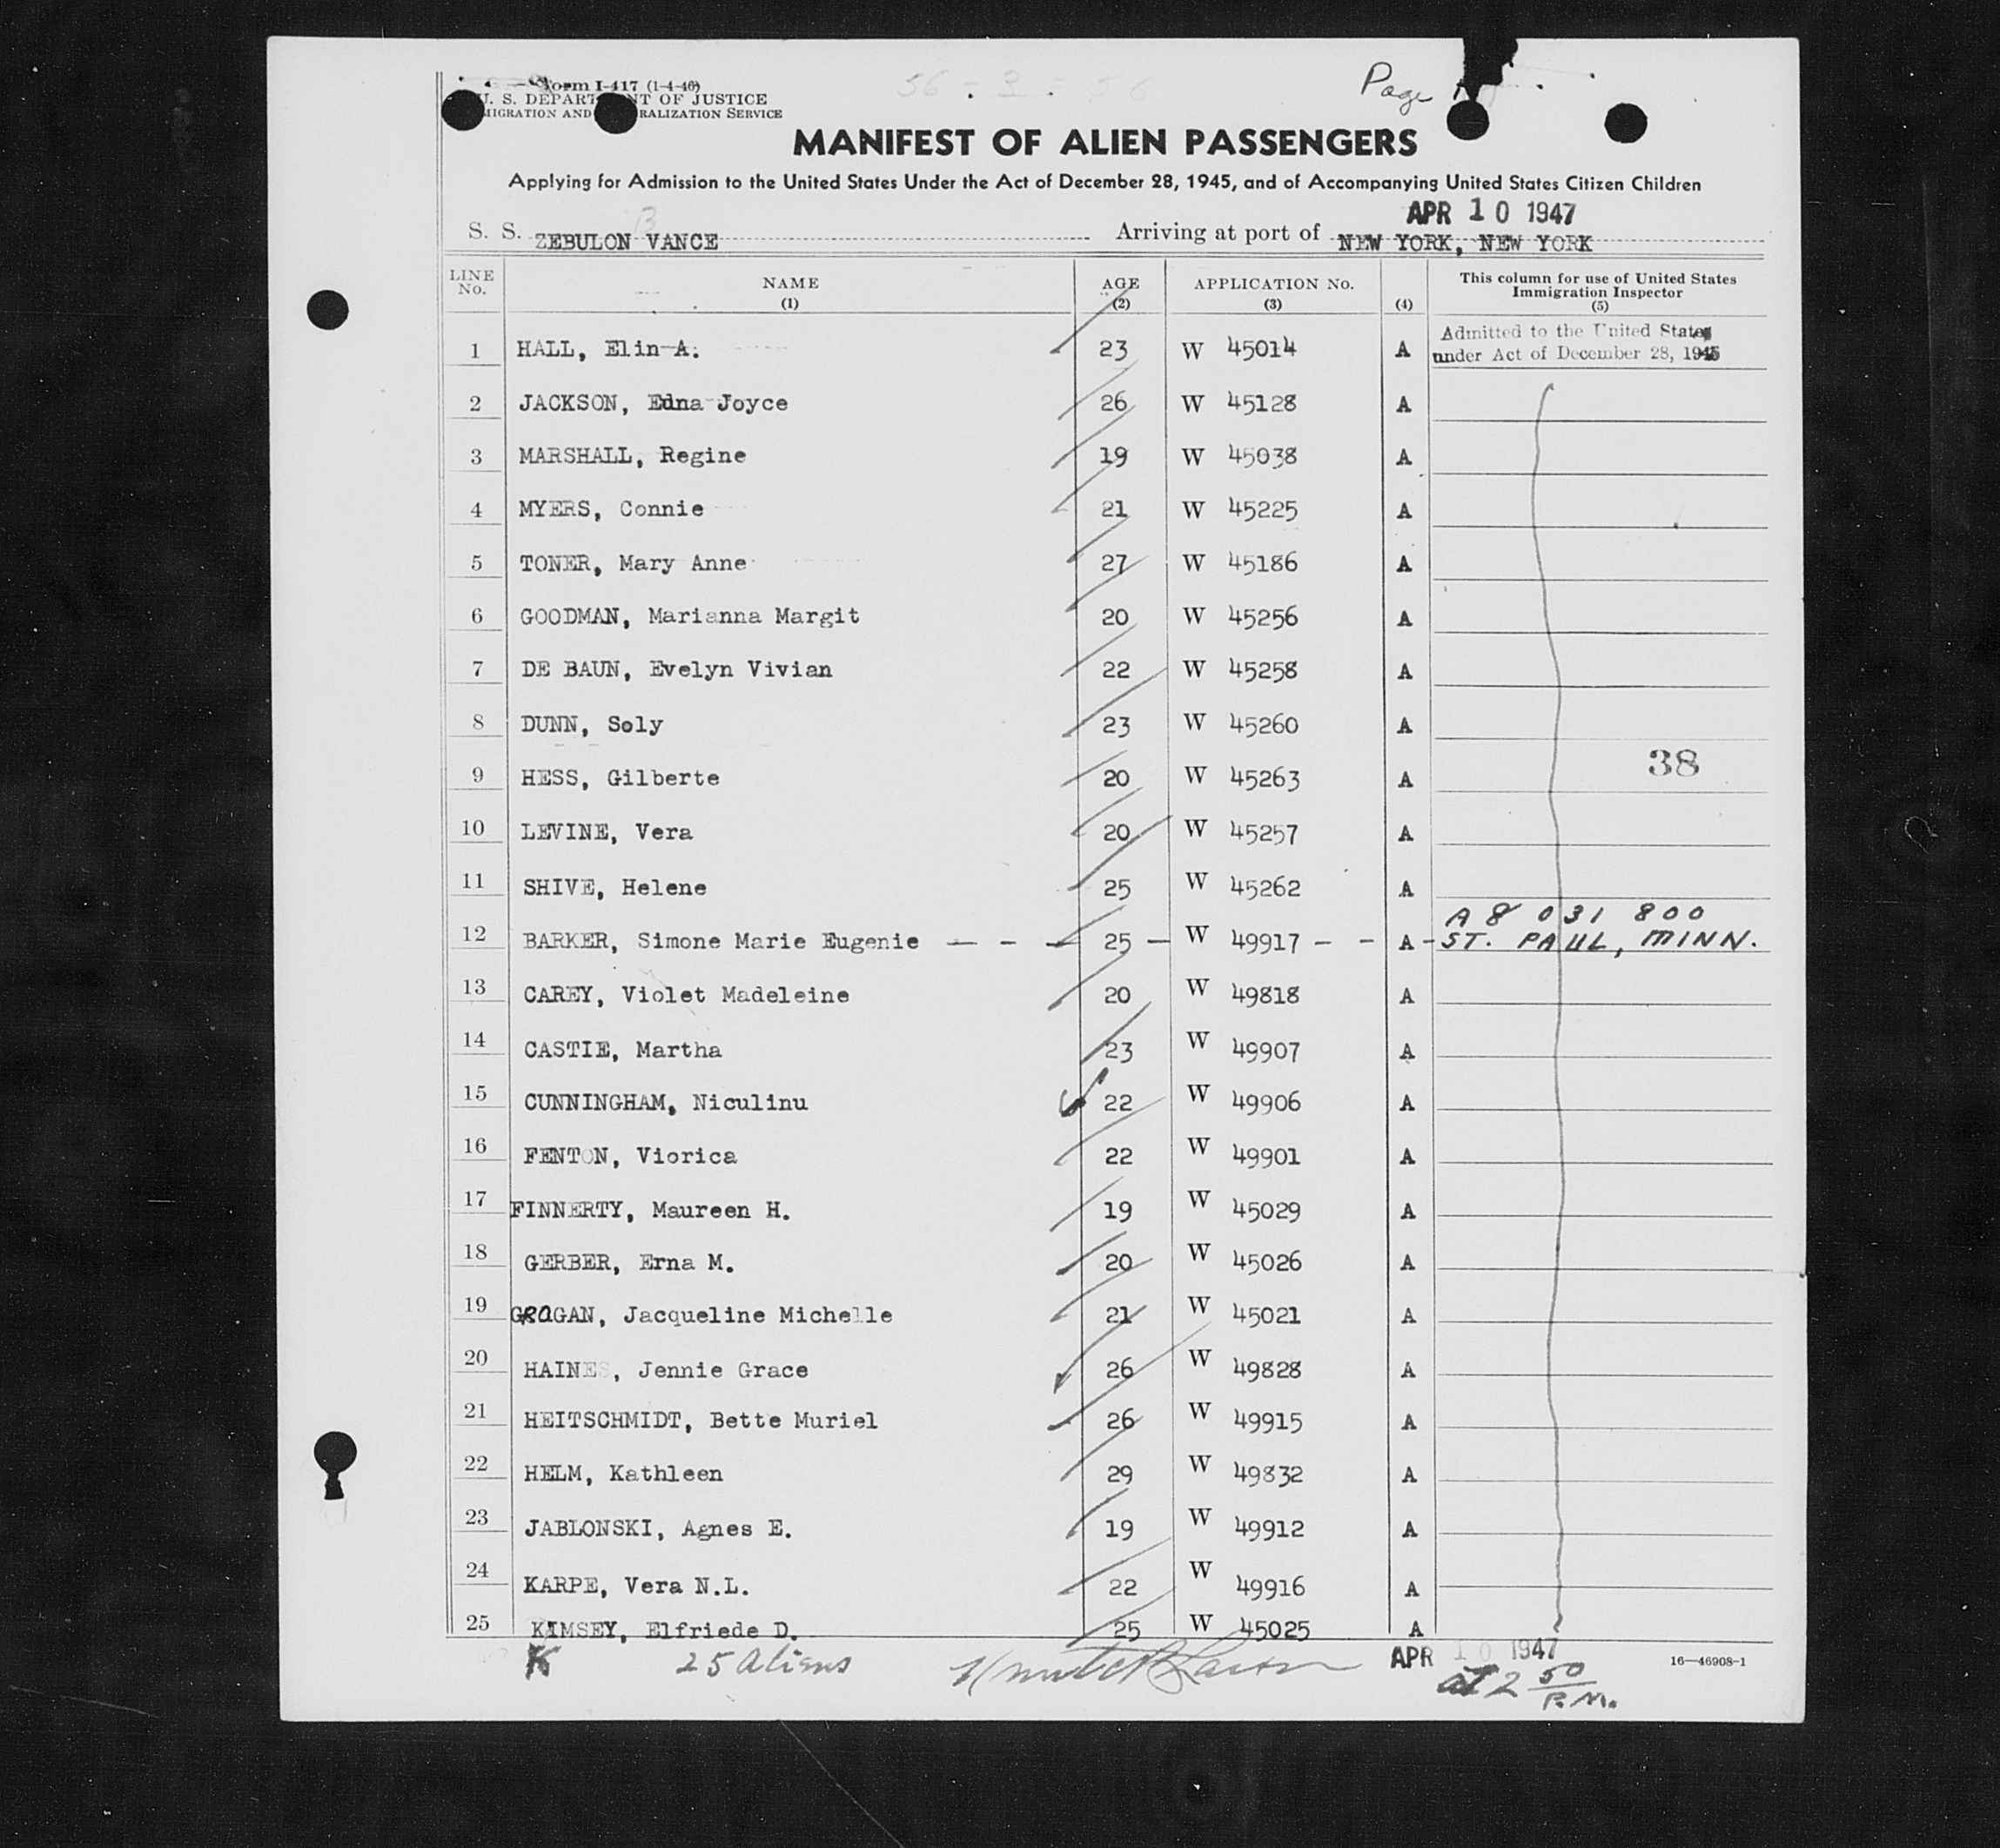 Form I-417 (1-4-46)
U. S. DEPART NT OF JUSTICE
IGRATION AND RALIZATION SERVICE
Page
MANIFEST OF ALIEN PASSENGERS
Applying for Admission to the United States Under the Act of December 28, 1945, and of Accompanying United States Citizen Children
APR 10 1947
S. S. ZEBULON B VANCE Arriving at port of NEW YORK, NEW YORK
LINE No. NAME (1) AGE (2) APPLICATION No. (3) (4) This column for use of United States Immigration Inspector (5)
Admitted to the United States
under Act of December 28, 1945
1 HALL, Elin A. 23 W 45014 A
2 JACKSON, Edna Joyce 26 W 45128 A
3 MARSHALL, Regine 19 W 45038 A
4 MYERS, Connie 21 W 45225 A
5 TONER, Mary Anne 27 W 45186 A
6 GOODMAN, Marianna Margit 20 W 45256 A
7 DE BAUN, Evelyn Vivian 22 W 45258 A
8 DUNN, Soly 23 W 45260 A
38
9 HESS, Gilberte 20 W 45263 A
10 LEVINE, Vera 20 W 45257 A
11 SHIVE, Helene 25 W 45262 A
A8 031 800
12 BARKER, Simone Marie Eugenie - - - 25 - W 49917 - - A - ST. PAUL, MINN.
13 CAREY, Violet Madeleine 20 W 49818 A
14 CASTIE, Martha 23 W 49907 A
15 CUNNINGHAM, Niculinu 22 W 49906 A
16 FENTON, Viorica 22 W 49901 A
17 FINNERTY, Maureen H. 19 W 45029 A
18 GERBER, Erna M. 20 W 45026 A
19 GROGAN, Jacqueline Michelle 21 W 45021 A
20 HAINES, Jennie Grace 26 W 49828 A
21 HEITSCHMIDT, Bette Muriel 26 W 49915 A
22 HELM, Kathleen 29 W 49832 A
23 JABLONSKI, Agnes E. 19 W 49912 A
24 KARPE, Vera N.L. 22 W 49916 A
25 KIMSEY, Elfriede D. 25 W 45025 A
25 Aliens APR 10 1947 16—46908-1
at 2 50 P.M.